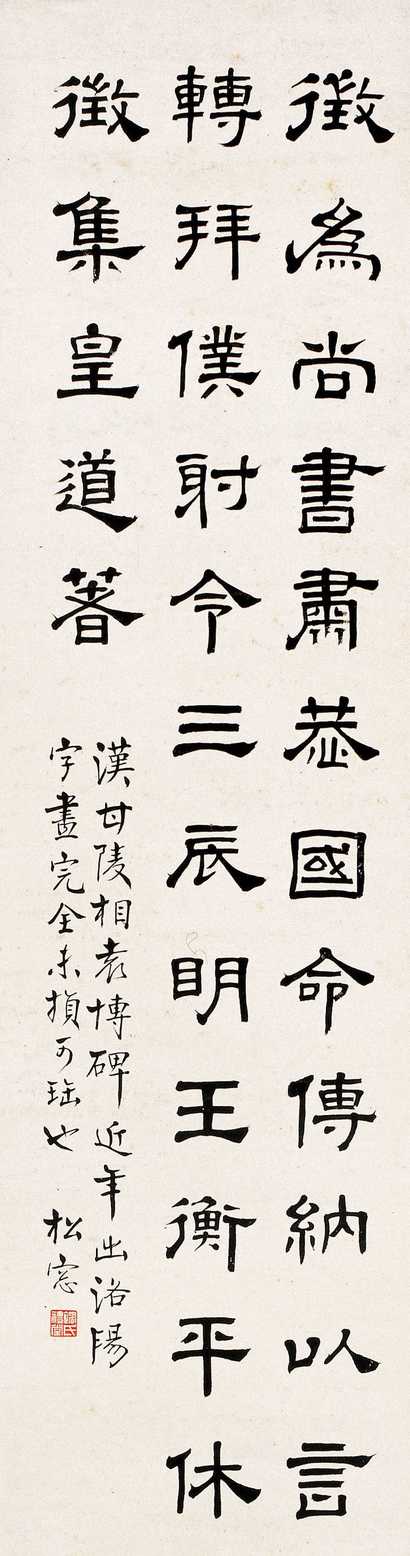 徵為尚書肅恭國命傳納以言
轉拜僕射令三辰明王衡平休
徵集皇道著
漢甘陵相袁博碑近年出洛陽
字畫完全未損可珤也 松窓